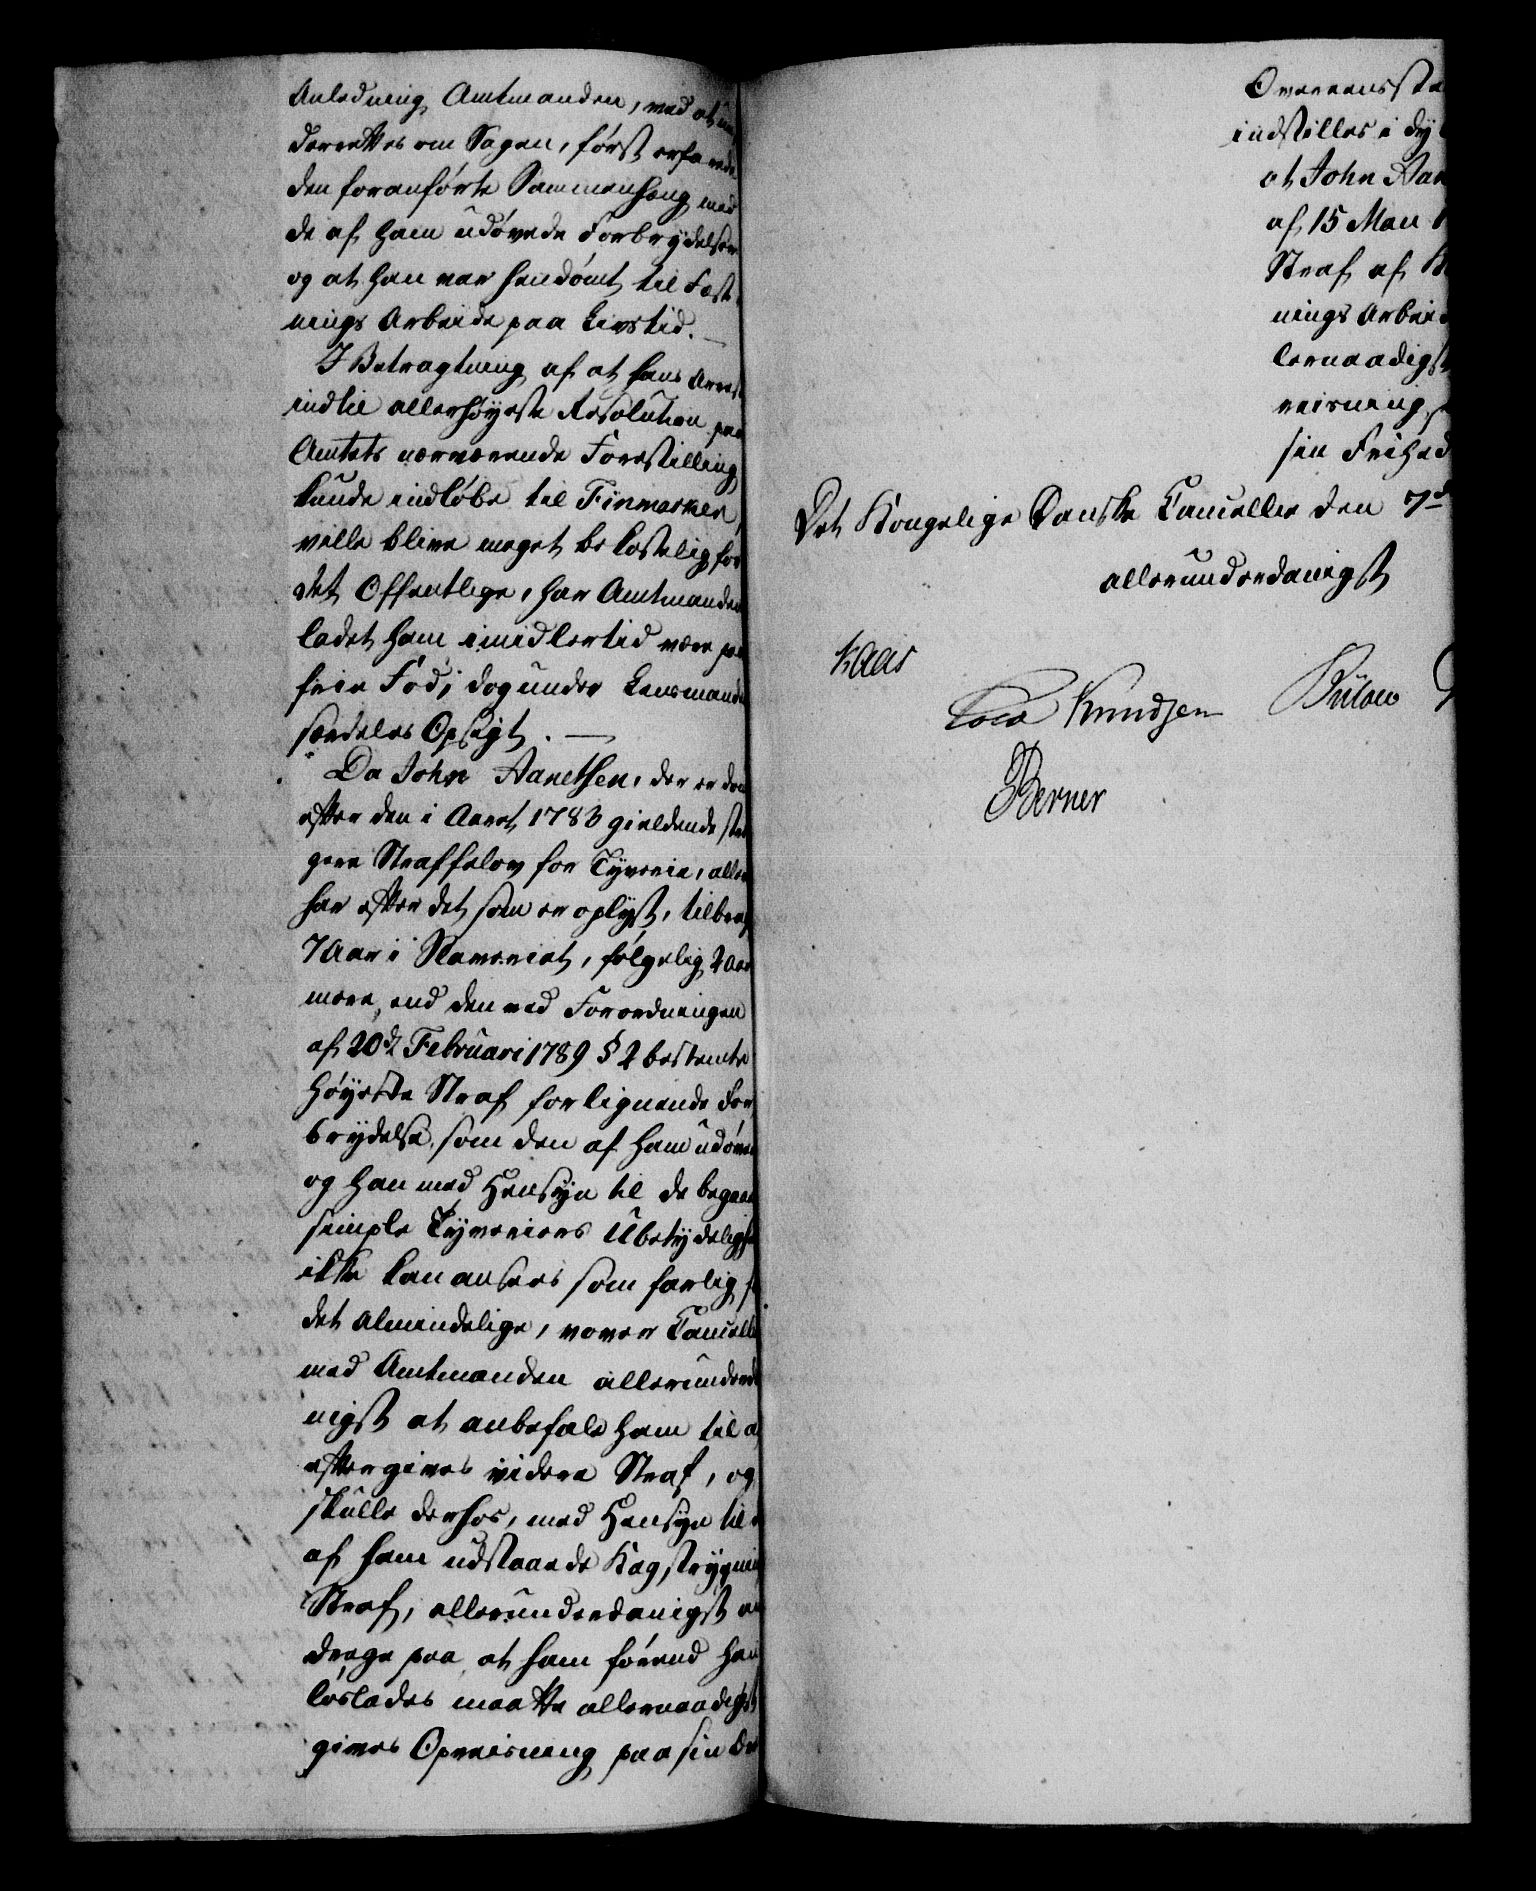 Anledning Amtmanden, ved at un-
derrettes om Sagen, først erfarede
den foranførte Sammenhæng med
de af ham udøvede Forbrydelser
og at han var hendømt til Fæst-
nings Arbeide paa Livstid. —
I Betragtning af at hans Arrest
indtil allerhøyeste Resolution paa
Amtets nærværende Forestilling
kunde indløbe til Finmarken,
ville blive meget bekostelig for
det Offentlige, har Amtmanden
ladet ham imidlertid være paa
frie Fod, dog under Lensmandens
særdeles Opsigt. —
Da John Aanethsen, der er dømt
efter den i Aaret 1783 gieldende stræn-
gere Straffelov for Tyverie, allerede
har efter det som er oplyst, tilbragt
7 Aar i Slaveriet, følgelig 2 Aar
mere, end den ved Forordningen
af 20de Februari 1789 § 2 bestemte
høyeste Straf for lignende For-
brydelse, som den af ham udøvede
og han med Hensyn til de begaaede
simple Tyveriers Ubetydelighed
ikke kan ansees som farlig for
det Almindelige, vover Cancelliet
med Amtmanden allerunderda-
nigst at anbefale ham til at
eftergives videre Straf, og
skulle derhos, med Hensyn til den
af ham udstaaede Kagstrygnings
Straf, allerunderdanigst an-
drage paa, at ham førend han
løslades maatte allernaadigst
gives Opreisning paa sin Ære
Overeensste
indstilles i dy
at John Aan
af 15 Mai
Straf af K
nings Arbeid
lernaadigst
reisning
sin Frihed
Det Kongelige Danske Cancellie den 7de
allerunderdanigst
Kaas
Cold Knudsen Bülow
Berner